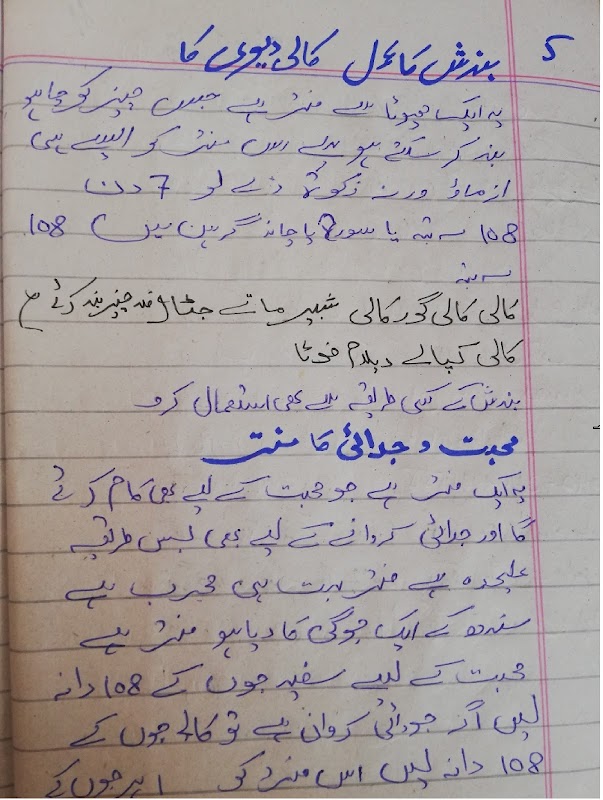 5 بندش کا عمل کالی دیوی کا
یہ ایک چھوٹا سے منتر ہے جس چیز کو چاہو
بند کر سکتے ہو پہلے اس منتر کو ایسے ہی
ازماؤ ورنہ زکوٰۃ دے لو 7 دن
108 مرتبہ یا سورج یا چاند گرہن میں 108
مرتبہ
کالی کالی گور کالی ماتے بند کرئے
کالی کپالے
بندش کے کسی طریقہ سے بھی استعمال کرو
محبت و جدائی کا منت
یہ ایک منتر ہے جو محبت کے لیے بھی کام کرئے
گا اور جدائی کروانے کے لیے بھی بس طریقہ
علیحدہ ہے منتر بہت ہی مجرب ہے
سندھ کے ایک جوگی کا دیا ہو منتر ہے
محبت کے لیے سفید جوں کے 108 دانہ
لیں اگر جودائی کروان ہے تو کالے جوں کے
108 دانہ لیں اس منتر کو ا ہر جوں کے